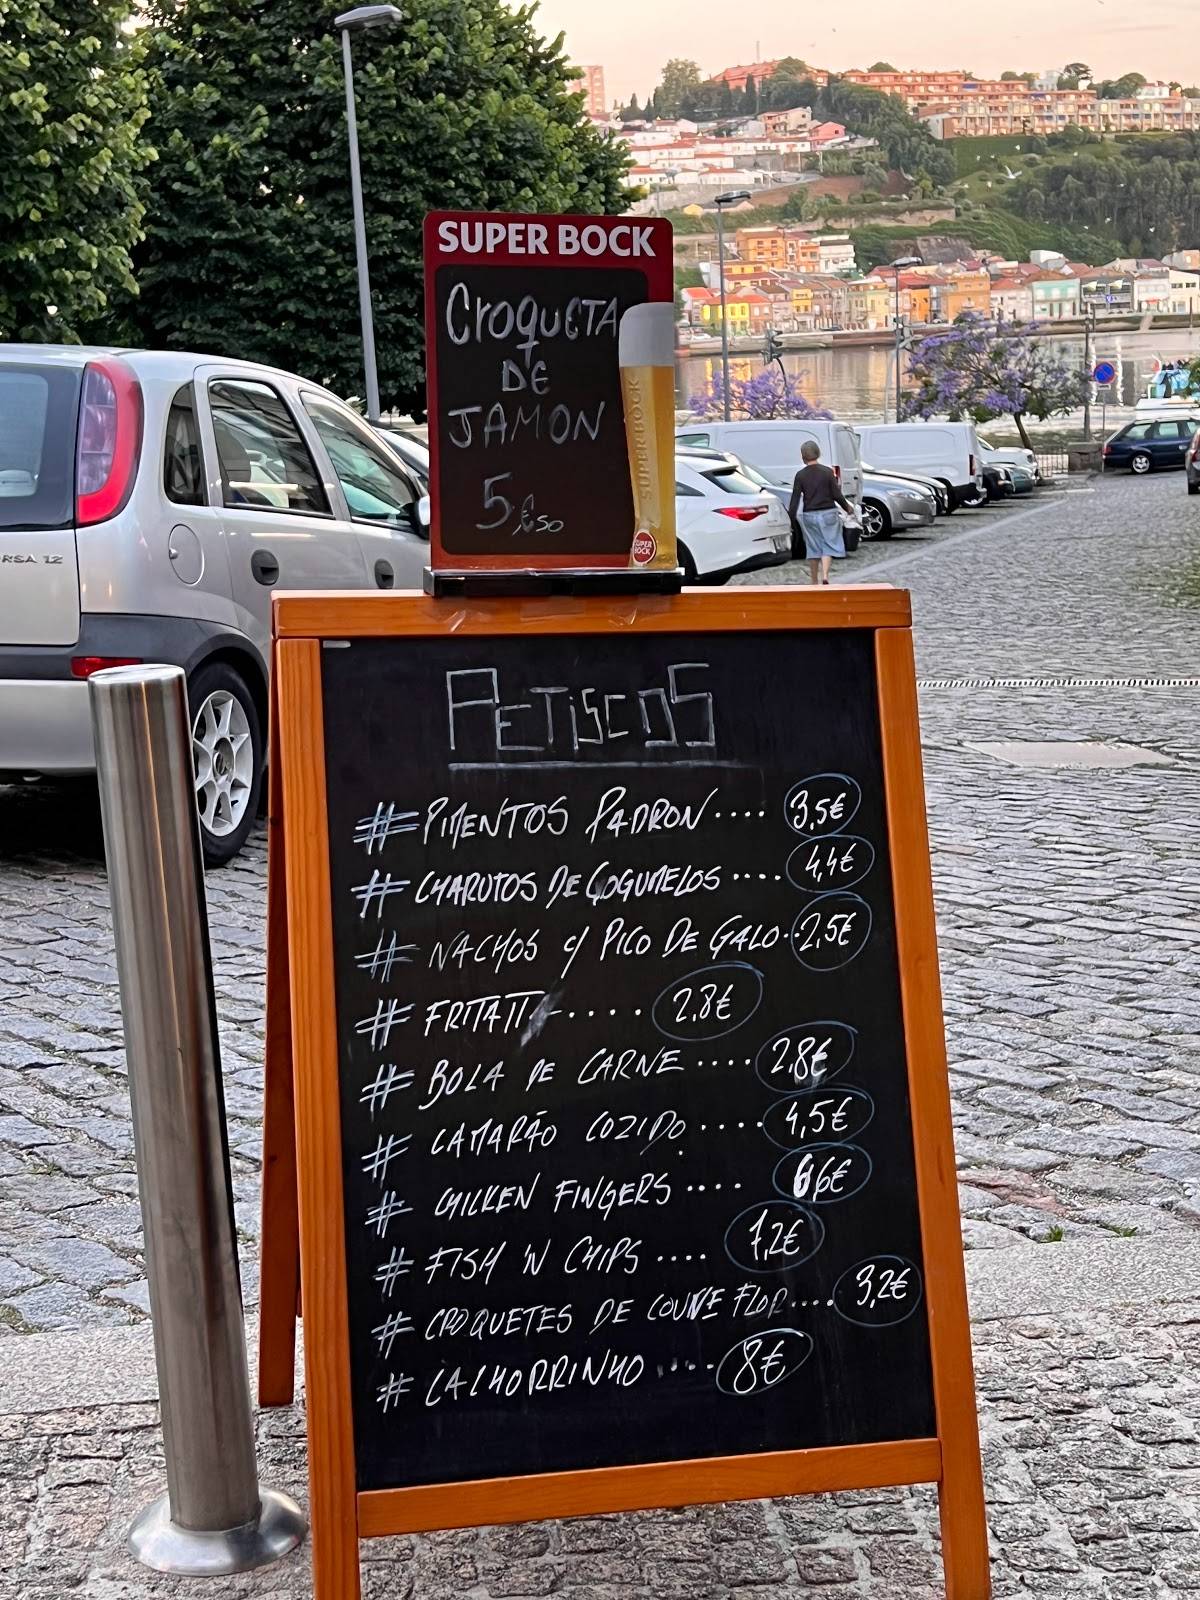 SUPER BOCK
CROQUETA
DE
JAMON
5,€50
SUPER BOCK
SUPER
BOCK
CORSA 1.2
PETISCOS
# PIMENTOS PADRON .... 3,5€
# CHARUTOS DE COGUMELOS .... 4,4€
# NACHOS c/ PICO DE GALO .. 2,5€
# FRITATTA .... 2,8€
# BOLA DE CARNE .... 2,8€
# CAMARÃO COZIDO .... 4,5€
# CHICKEN FINGERS .... 6,6€
# FISH 'N CHIPS .... 7,2€
# CROQUETES DE COUVE FLOR .... 3,2€
# CACHORRINHO .... 8€